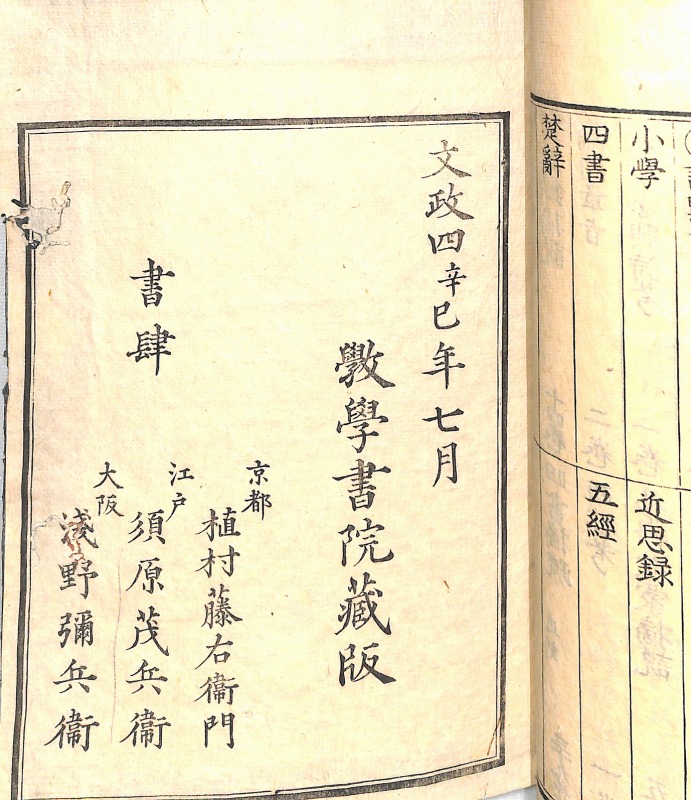 小學
四書
楚辭
近思録
五經
文政四辛巳年七月
斅學書院藏版
書肆
京都
植村藤右衞門
江戸
須原茂兵衞
大阪
淺野彌兵衞